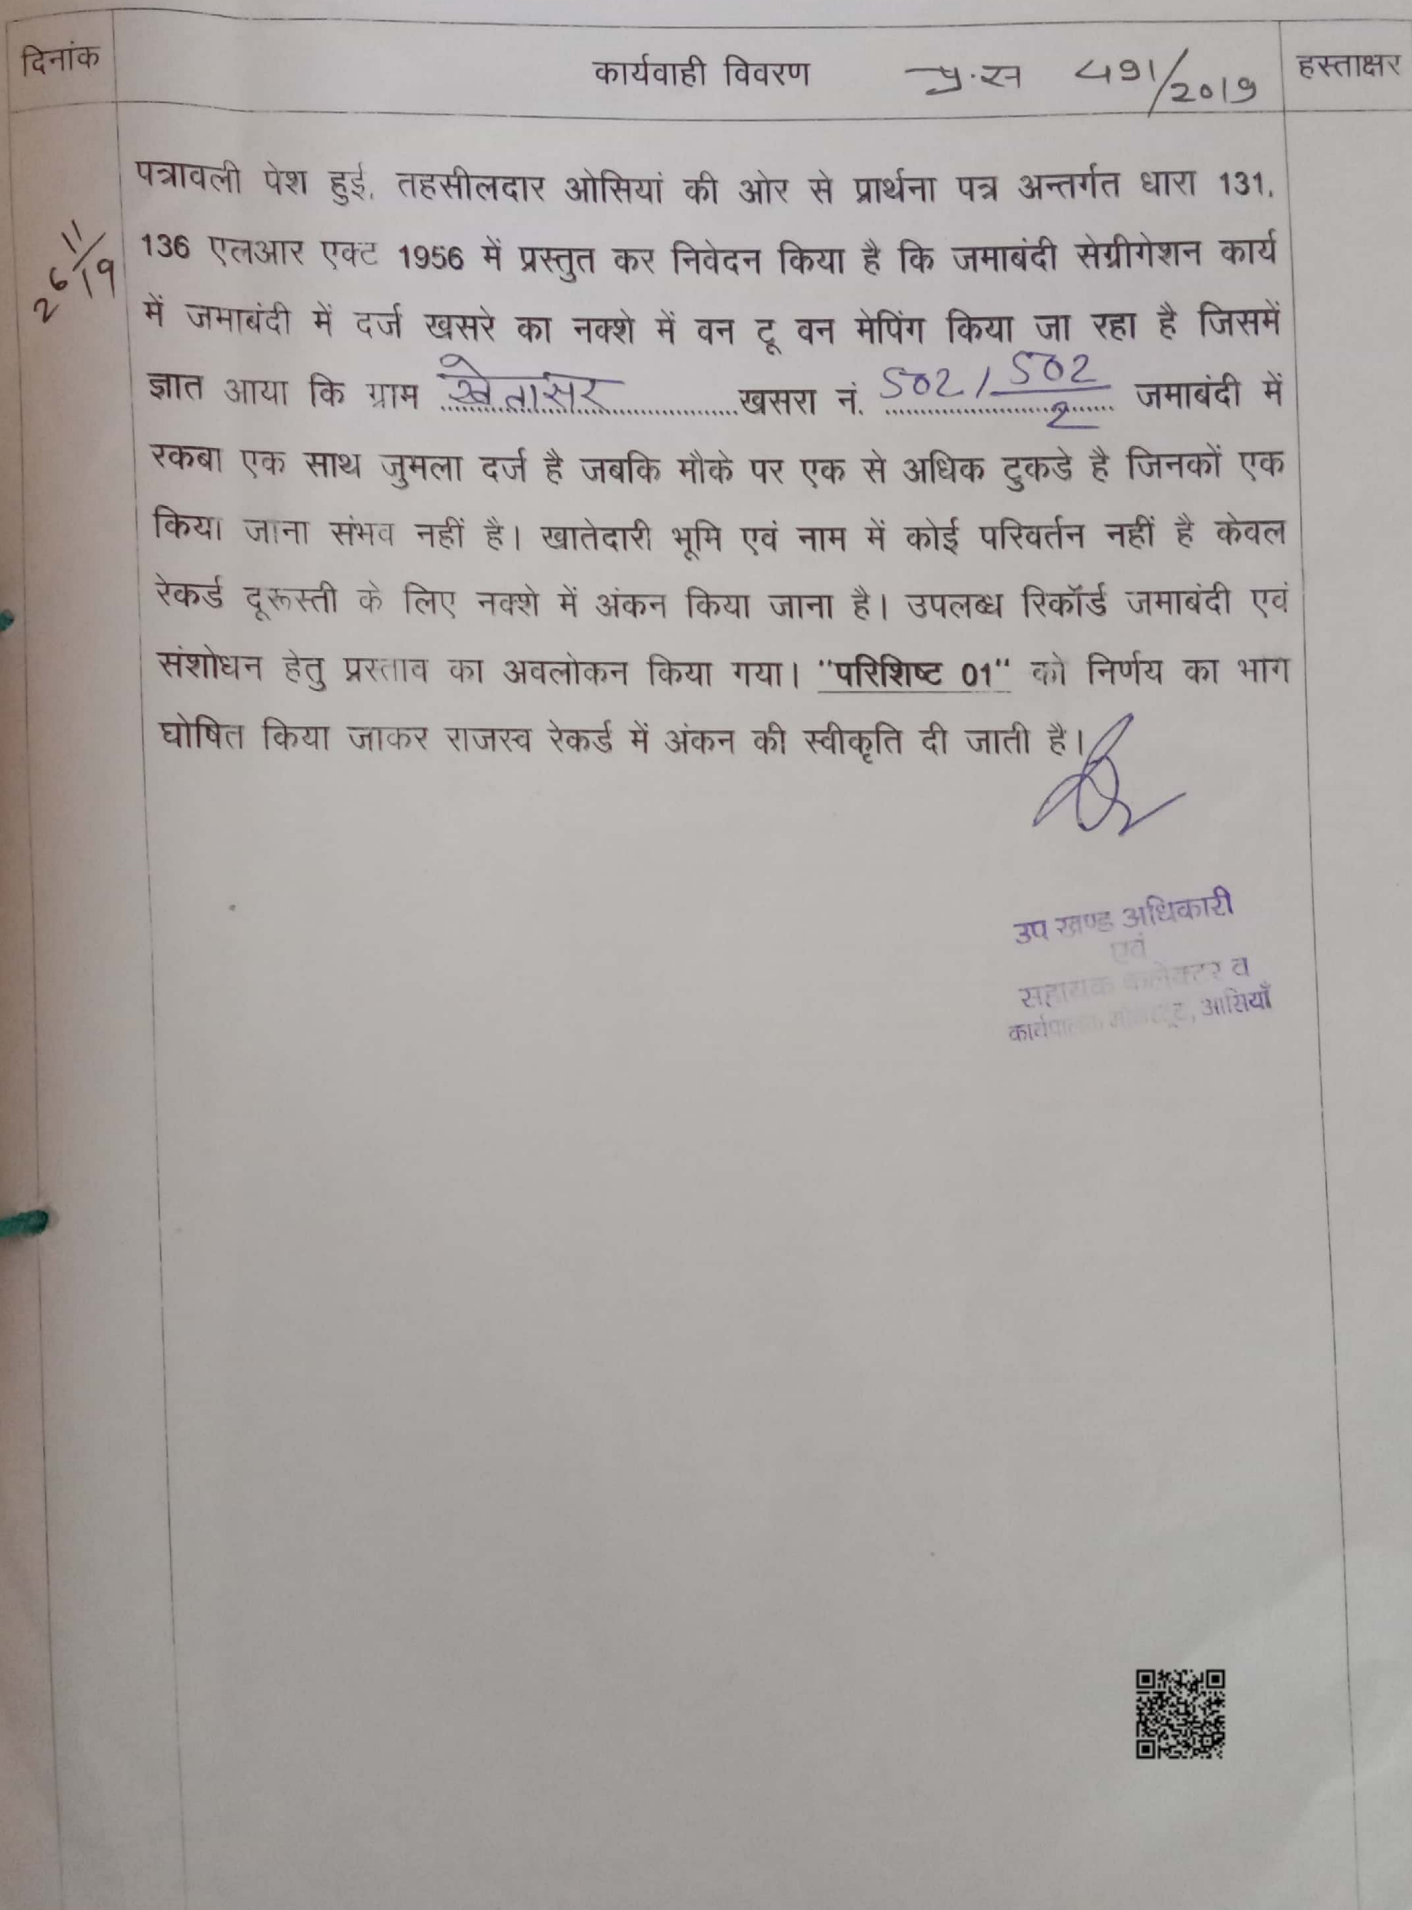 दिनांक
कार्यवाही विवरण प्र.स 491/2019
हस्ताक्षर
26/11/19
पत्रावली पेश हुई, तहसीलदार ओसियां की ओर से प्रार्थना पत्र अन्तर्गत धारा 131,
136 एलआर एक्ट 1956 में प्रस्तुत कर निवेदन किया है कि जमाबंदी सेग्रीगेशन कार्य
में जमाबंदी में दर्ज खसरे का नक्शे में वन टू वन मेपिंग किया जा रहा है जिसमें
ज्ञात आया कि ग्राम खेतासर खसरा नं. 502/502/2 जमाबंदी में
रकबा एक साथ जुमला दर्ज है जबकि मौके पर एक से अधिक टुकडे है जिनकों एक
किया जाना संभव नहीं है। खातेदारी भूमि एवं नाम में कोई परिवर्तन नहीं है केवल
रेकर्ड दूरूस्ती के लिए नक्शे में अंकन किया जाना है। उपलब्ध रिकॉर्ड जमाबंदी एवं
संशोधन हेतु प्रस्ताव का अवलोकन किया गया। "परिशिष्ट 01" को निर्णय का भाग
घोषित किया जाकर राजस्व रेकर्ड में अंकन की स्वीकृति दी जाती है।
उप खण्ड अधिकारी
एवं
सहायक कलेक्टर व
आसियाँ